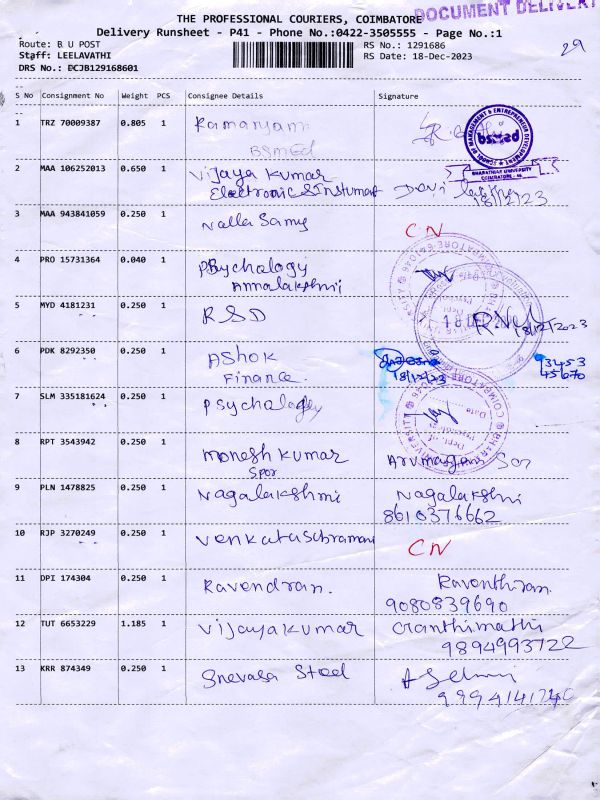 THE PROFESSIONAL COURIERS, COIMBATORE
DOCUMENT DELIVERY
Delivery Runsheet - P41 - Phone No.:0422-3505555 - Page No.:1
Route: B U POST
RS No.: 1291686
29
Staff: LEELAVATHI
RS Date: 18-Dec-2023
DRS No.: ECJB129168601
S No Consignment No Weight PCS Consignee Details Signature
1 TRZ 70009387 0.805 1 Ramanjam
BSMED
bsmed
SCHOOL OF MANAGEMENT & ENTREPRENEUR DEVELOPMENT
BHARATHIAR UNIVERSITY
COIMBATORE - 46
2 MAA 106252013 0.650 1 Vijaya Kumar
Electronic & Instument Devi
18/12/23
3 MAA 943841059 0.250 1 Nalla Samy CN
4 PRO 15731364 0.040 1 PSychology
Annalakshmi
5 MYD 4181231 0.250 1 RSD
18/12/2023
6 PDK 8292350 0.250 1 Ashok 93453
Finance. 18/12/23 45670
7 SLM 335181624 0.250 1 Psychology
8 RPT 3543942 0.250 1 Monesh Kumar Arumugam
Spor
9 PLN 1478825 0.250 1 Nagalakshmi Nagalakshmi
8610376662
10 RJP 3270249 0.250 1 Venkatasubramani CN
11 DPI 174304 0.250 1 Ravendran. Raventhiran
9080839690
12 TUT 6653229 1.185 1 Vijayakumar Cranthimathi
9894993722
13 KRR 874349 0.250 1 Snevasa Steel A Selvi
9994141740